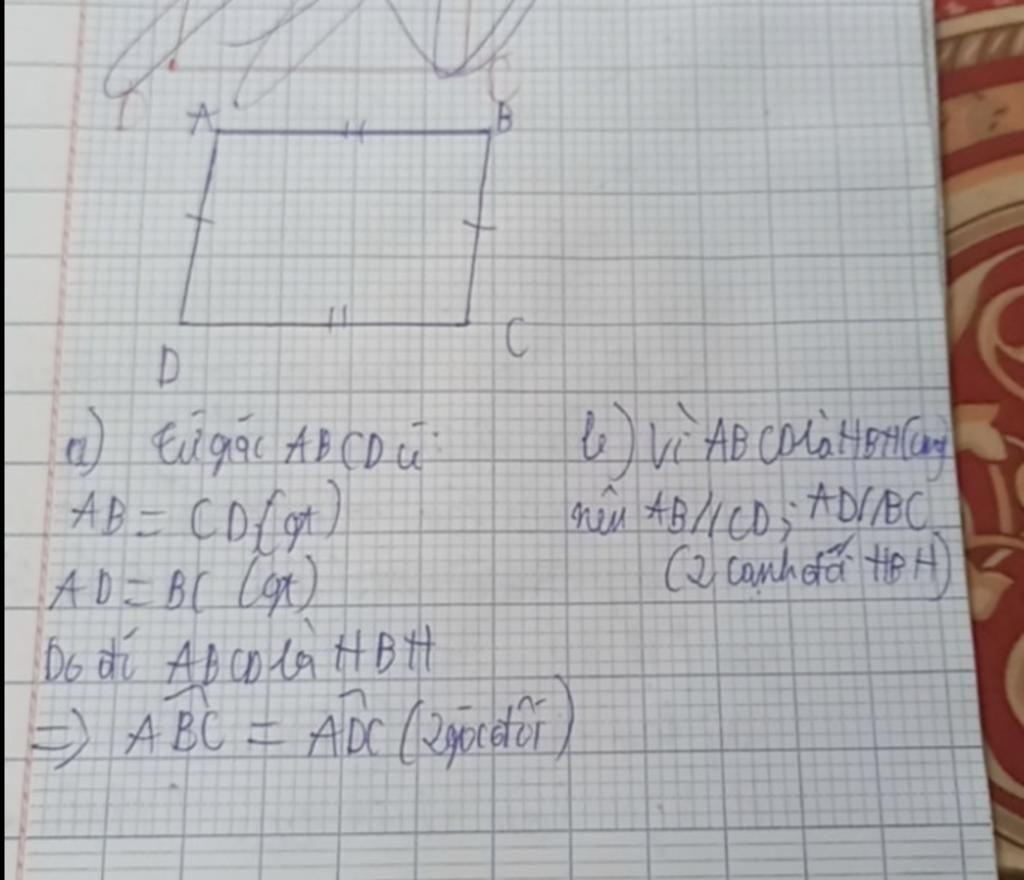 A B
D C
a) Tứ giác ABCD có:
AB = CD (gt)
AD = BC (gt)
Do đó ABCD là HBH
=> ABC = ADC (2 góc đối)
b) Vì ABCD là HBH (cmt)
nên AB//CD; AD//BC
(2 cạnh đối HBH)